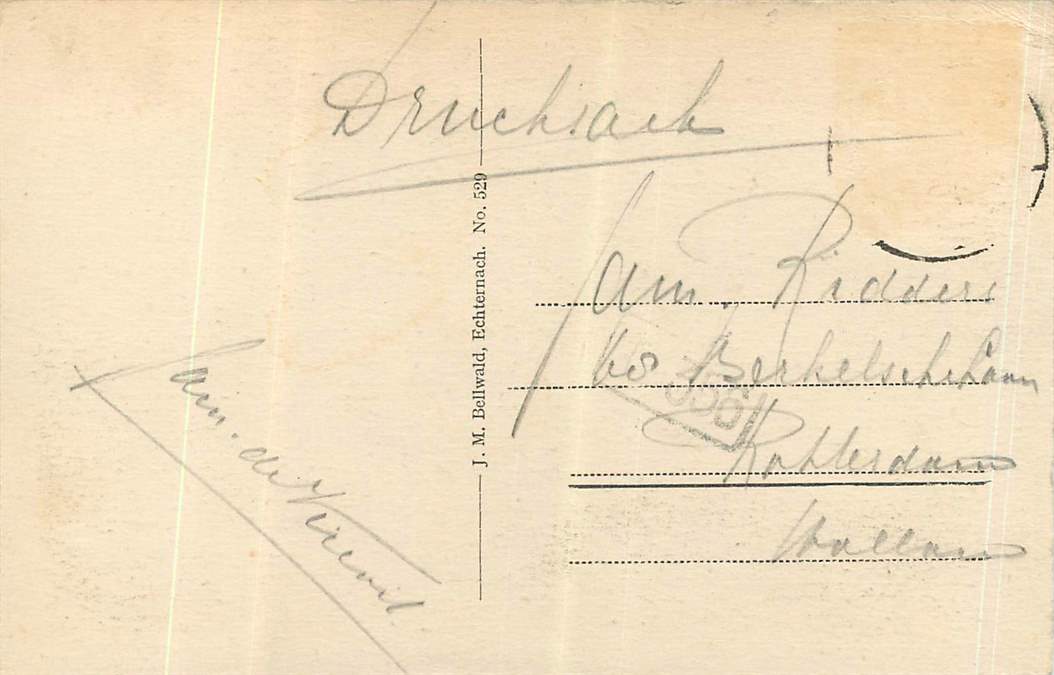 Drucksach
J. M. Bellwald, Echternach. No. 529
Fam. Ridders
Berkelschelaan
Rotterdam
Holland
Fam. de